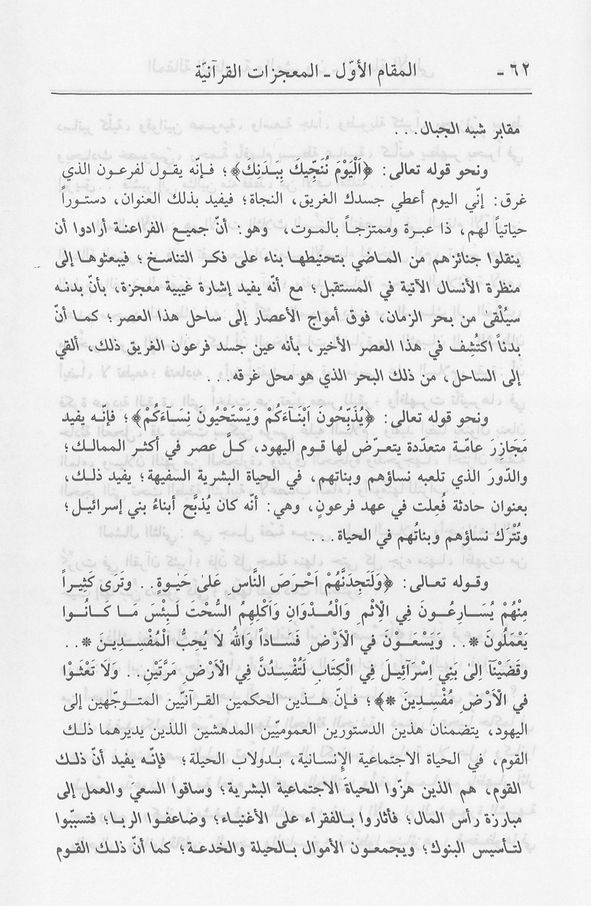 ٦٢ - المقام الأوّل - المعجزات القرآنيّة
مقابر شبه الجبال...
ونحو قوله تعالى: ﴿اَلْيَوْمَ نُنَجِّيكَ بِبَدَنِكَ﴾؛ فإنّه يقول لفرعون الذي
غرق: إنّي اليوم أعطي جسدك الغريق، النجاة؛ فيفيد بذلك العنوان، دستوراً
حياتياً لهم، ذا عبرة وممتزجاً بالموت، وهو: أنّ جميع الفراعنة أرادوا أن
ينقلوا جنائزهم من الماضي بتحنيطها بناء على فكر التناسخ؛ فيبعثوها إلى
منظرة الأنسال الآتية في المستقبل؛ مع أنّه يفيد إشارة غيبية معجزة، بأنّ بدنه
سيُلْقىٰ من بحر الزمان، فوق أمواج الأعصار إلى ساحل هذا العصر؛ كما أنّ
بدناً اكتُشِف في هذا العصر الأخير، بأنه عين جسد فرعون الغريق ذلك، ألقي
إلى الساحل، من ذلك البحر الذي هو محل غرقه...
ونحو قوله تعالى: ﴿يُذَبِّحونَ اَبْنَاءَكُمْ وَيَسْتَحْيُونَ نِسَاءَكُمْ﴾؛ فإنّه يفيد
مَجَازِرَ عامّة متعدّدة يتعرّض لها قوم اليهود، كلَّ عصر في أكثر الممالك؛
والدّورَ الذي تلعبه نساؤهم وبناتهم، في الحياة البشرية السفيهة؛ يفيد ذلك،
بعنوان حادثة فُعِلت في عهد فرعون، وهي: أنّه كان يُذبَّح أبناءُ بني إسرائيل؛
وتُتْرَك نساؤهم وبناتُهم في الحياة...
وقوله تعالى: ﴿وَلَتَجِدَنَّهُمْ اَحْرَصَ النَّاسِ عَلىٰ حَيٰوةٍ.. وتَرَى كَثِيراً
مِنْهُمْ يُسَارِعُونَ فِي الْاِثْمِ وَالْعُدْوَانِ وَاَكْلِهِمُ السُّحْتَ لَبِئْسَ مَا كَانُوا
يَعْمَلُونَ *.. وَيَسْعَوْنَ في الْاَرْضِ فَسَاداً وَاللهُ لَا يُحِبُّ الْمُفْسِدِينَ *..
وقَضَيْنَا اِلىٰ بَنِي اِسْرَائِيلَ فِي الْكِتَابِ لَتُفْسِدُنَّ فِي الْاَرْضِ مَرَّتَيْنِ.. وَلَا تَعْثَوْا
في الْاَرْضِ مُفْسِدِينَ *﴾؛ فإنّ هذين الحكمين القرآنيّين المتوجّهين إلى
اليهود، يتضمنان هذين الدستورين العموميّين المدهشين اللذين يديرهما ذلك
القوم، في الحياة الاجتماعية الإنسانية، بدولاب الحيلة؛ فإنّه يفيد أنّ ذلك
القوم، هم الذين هزّوا الحياةَ الاجتماعية البشرية؛ وساقوا السعيَ والعمل إلى
مبارزة رأس المال؛ فأثاروا بالفقراء على الأغنياء؛ وضاعفوا الربا؛ فتسبّبوا
لتأسيس البنوك؛ ويجمعون الأموال بالحيلة والخدعة؛ كما أنّ ذلك القوم